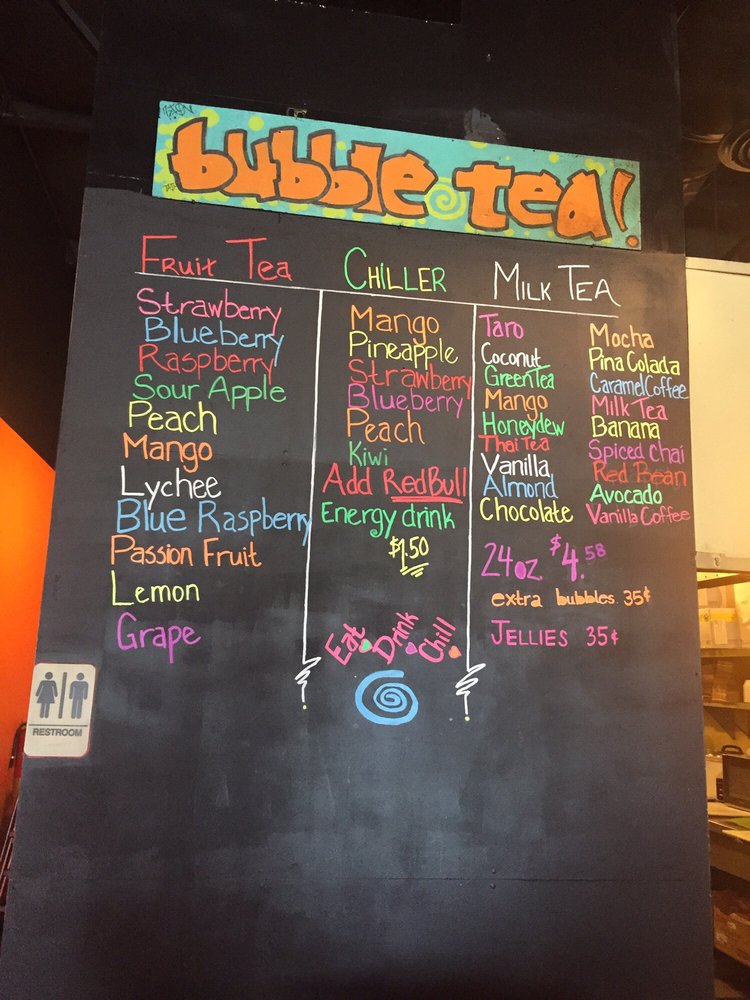 bubble tea!
Fruit Tea
Strawberry
Blueberry
Raspberry
Sour Apple
Peach
Mango
Lychee
Blue Raspberry
Passion Fruit
Lemon
Grape
Chiller
Mango
Pineapple
Strawberry
Blueberry
Peach
Kiwi
Add Red Bull
Energy drink
$1.50
Eat Drink Chill
Milk Tea
Taro
Coconut
Green Tea
Mango
Honeydew
Thai Tea
Vanilla
Almond
Chocolate
Mocha
Pina Colada
Caramel Coffee
Milk Tea
Banana
Spiced Chai
Red Bean
Avocado
Vanilla Coffee
24oz. $4.58
extra bubbles 35¢
Jellies 35¢
RESTROOM